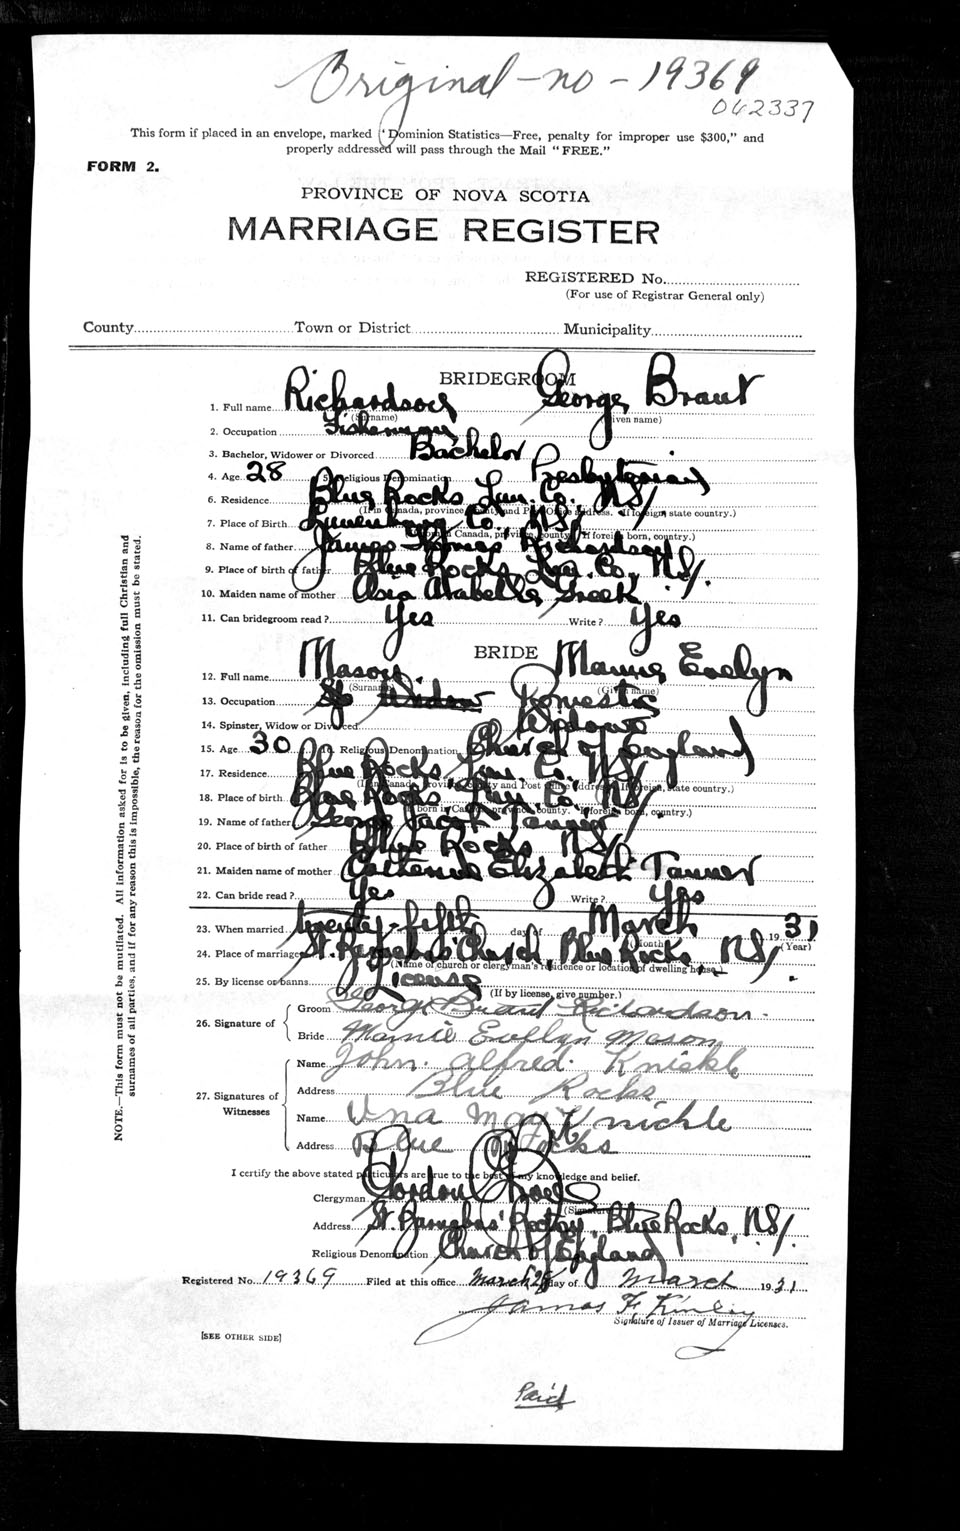 Original - no - 19369
042337
This form if placed in an envelope, marked "Dominion Statistics—Free, penalty for improper use $300," and
properly addressed will pass through the Mail "FREE."
FORM 2.
PROVINCE OF NOVA SCOTIA
MARRIAGE REGISTER
REGISTERED No.
(For use of Registrar General only)
County Town or District Municipality
BRIDEGROOM
1. Full name Richardson George Brant
(Surname) (Given name)
2. Occupation Fisherman
3. Bachelor, Widower or Divorced Bachelor
4. Age 28 5. Religious Denomination Presbyterian
6. Residence Blue Rocks Lun. Co. N.S/
(If in Canada, province, county and Post Office address. If foreign, state country.)
7. Place of Birth Lunenburg Co. N.S/
(If born in Canada, province, county. If foreign born, country.)
8. Name of father James Thomas Richardson
9. Place of birth of father Blue Rocks Lun. Co. N.S/.
10. Maiden name of mother Asia Arabella Greek
11. Can bridegroom read? Yes Write? Yes
BRIDE
12. Full name Mason. Evelyn
(Surname) (Given name)
13. Occupation Domestic
14. Spinster, Widow or Divorced Widow
15. Age 30 16. Religious Denomination Church of England
17. Residence Blue Rocks, Lun. Co. N.S/
(If in Canada, province, county and Post Office address. If foreign, state country.)
18. Place of birth Blue Rocks Lun. Co. N.S/
(If born in Canada, province, county. If foreign born, country.)
19. Name of father George Jacob Tanner
20. Place of birth of father Blue Rocks N.S/.
21. Maiden name of mother Catherine Elizabeth Tanner
22. Can bride read? Yes Write? Yes
23. When married twenty-fifth day of March 1931
(Month) (Year)
24. Place of marriage St. Barnabas' Church, Blue Rocks, N.S/.
(Name of church or clergyman's residence or location of dwelling house.)
25. By license or banns License
(If by license, give number.)
26. Signature of
Groom George Brant Richardson.
Bride Mamie Evelyn Mason
27. Signatures of Witnesses
Name John. Alfred. Knickle
Address Blue Rocks
Name Una May Knickle
Address Blue Rocks
I certify the above stated particulars are true to the best of my knowledge and belief.
Clergyman Gordon
(Signature)
Address St. Barnabas' Rectory, Blue Rocks, N.S/.
Religious Denomination Church of England
Registered No. 19369 Filed at this office March 28 day of March 1931
James F. Kinley
Signature of Issuer of Marriage Licenses.
[SEE OTHER SIDE]
Paid
NOTE.—This form must not be mutilated. All information asked for is to be given, including full Christian and
surnames of all parties, and if for any reason this is impossible, the reason for the omission must be stated.